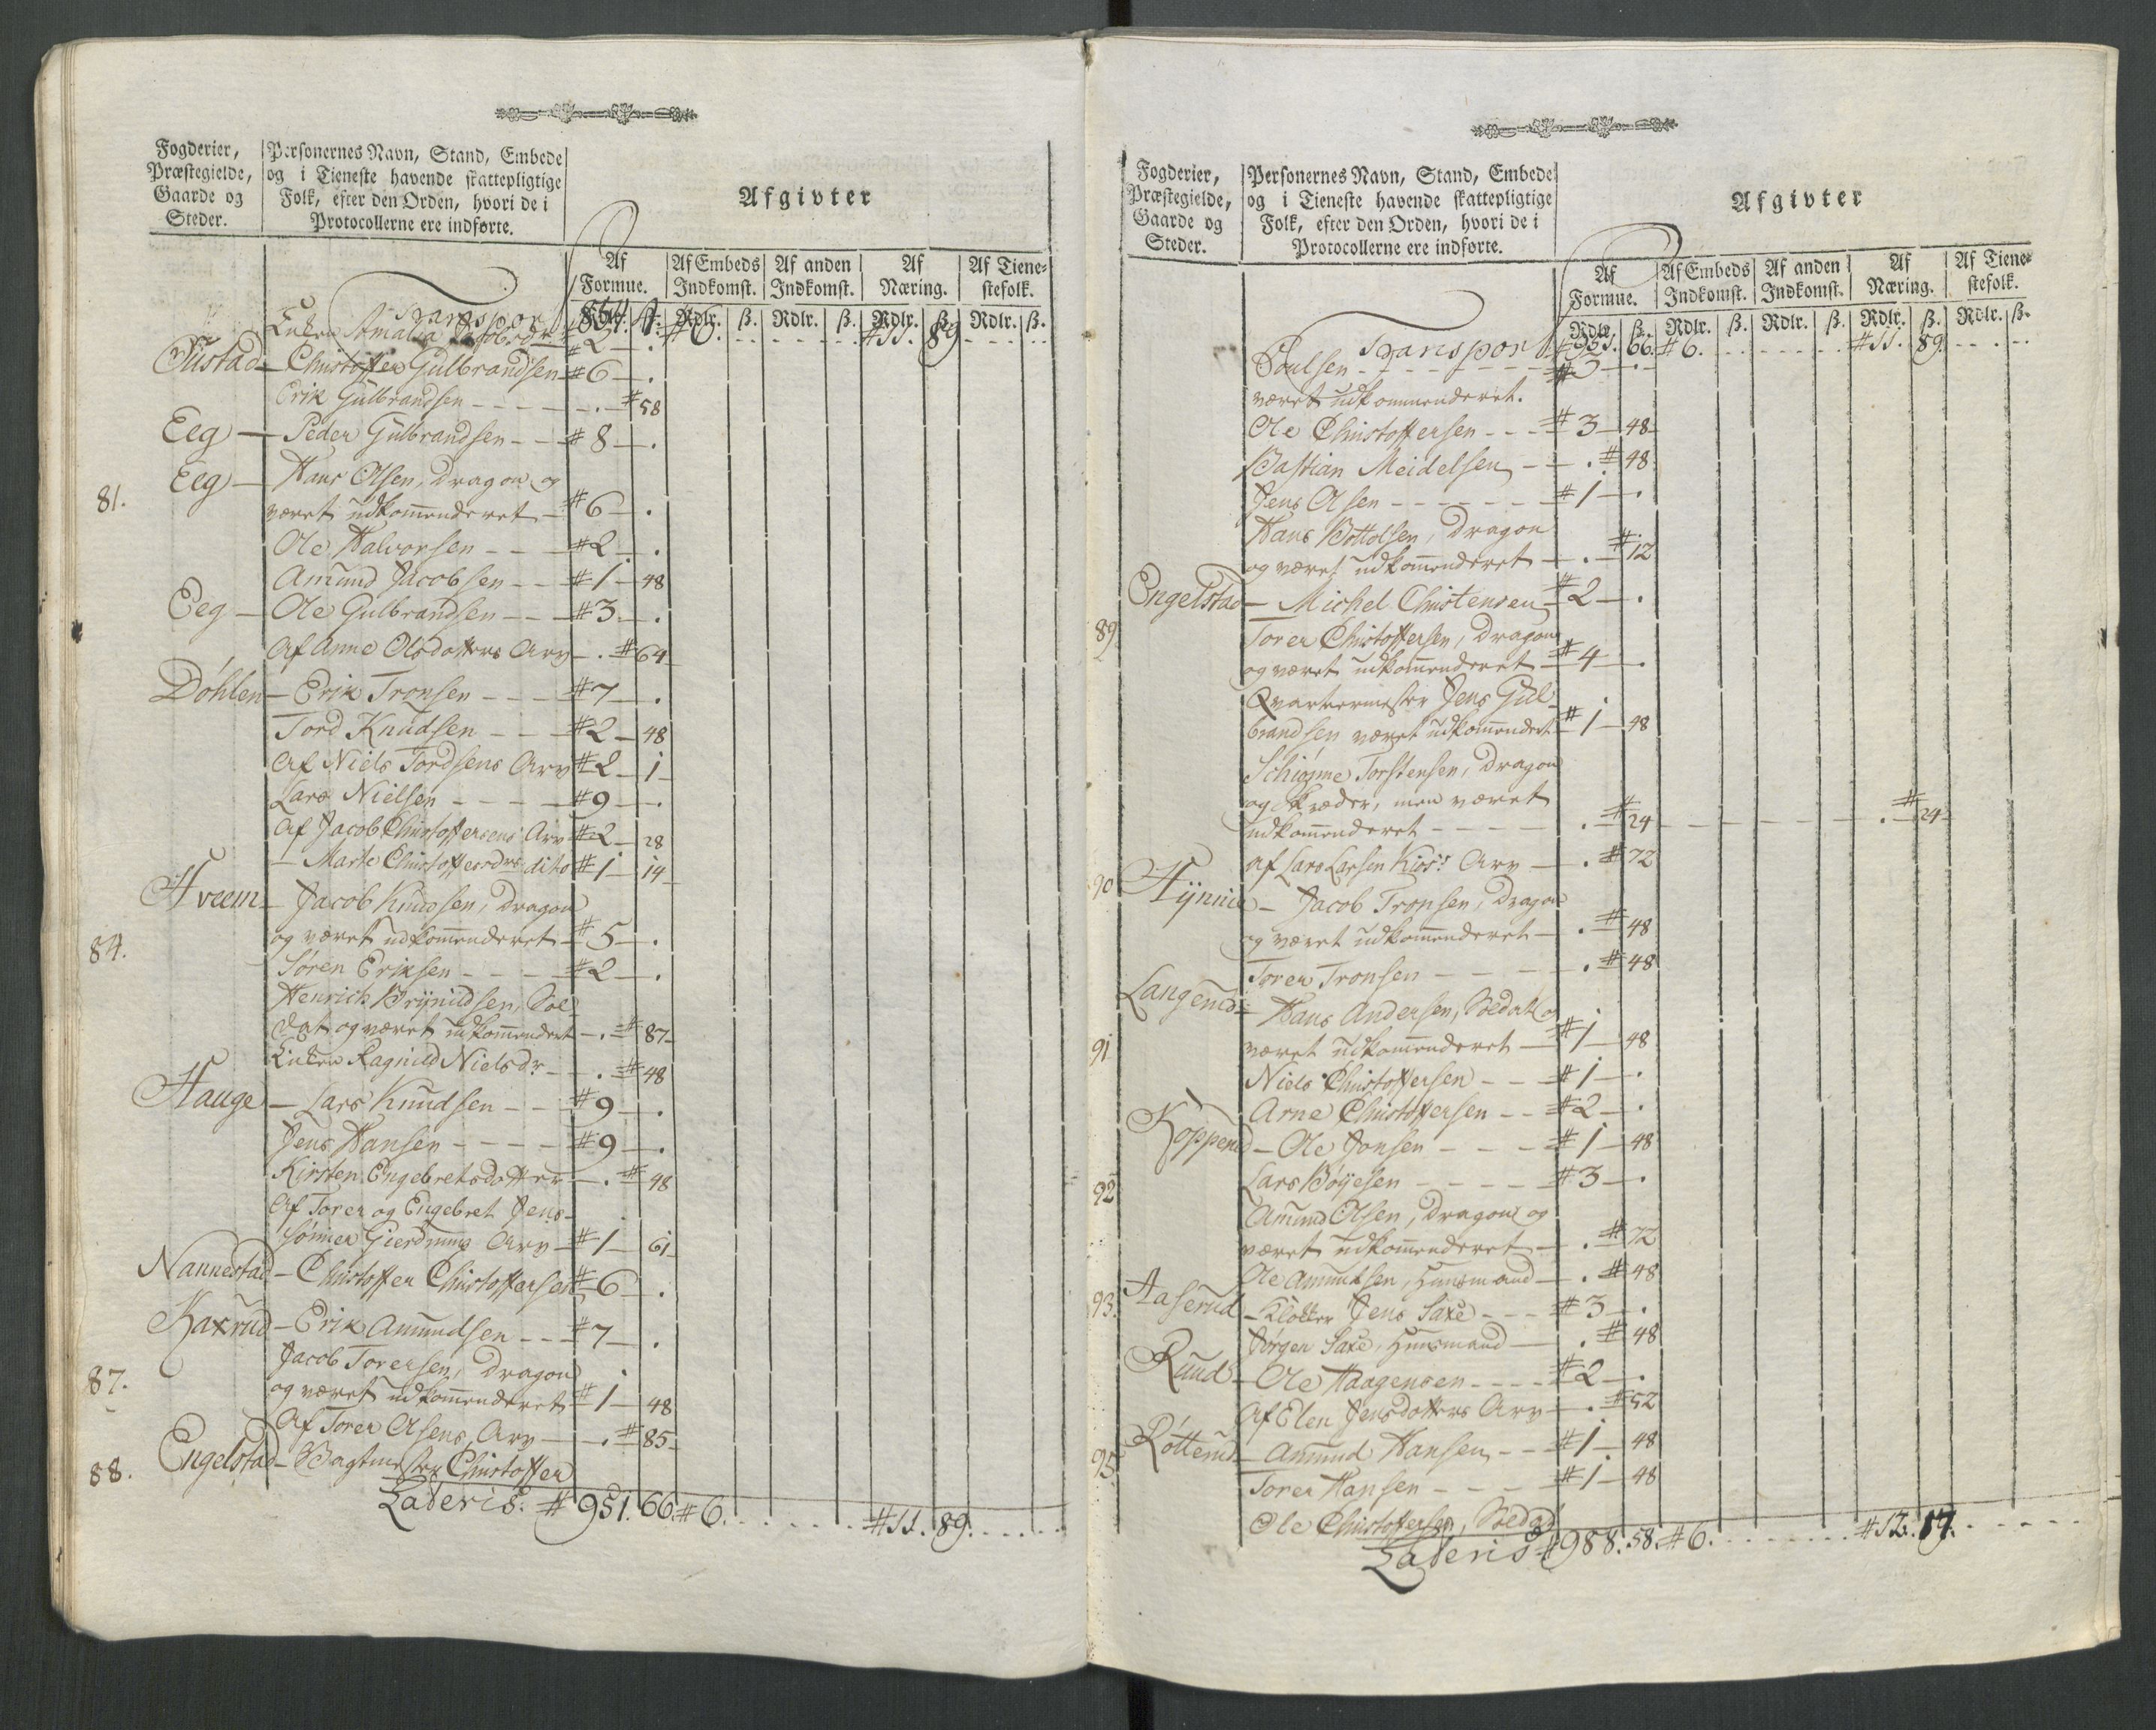 Fogderier,
Præstegielde,
Gaarde og
Steder.
Personernes Navn, Stand, Embede
og i Tieneste havende skattepligtige
Folk, efter den Orden, hvori de i
Protocollerne ere indførte.
Afgivter
Af Formue. Af Embeds Indkomst. Af anden Indkomst. Af Næring. Af Tienestefolk.
Rdlr. ß. Rdlr. ß. Rdlr. ß. Rdlr. ß.
Transport # 6. # 11. 89
Enken Amalia Jacobsdr # 2 .
Tustad Christoffer Gulbrandsen # 6 .
Erik Gulbrandsen . # 58
Eeg Peder Gulbrandsen # 8 .
Eeg Hans Olsen, Dragon og
81. været udkom̄enderet # 6 .
Ole Halvorsen # 2 .
Amund Jacobsen # 1 48
Eeg Ole Gulbrandsen # 3 .
Af Anne Olsdotters Arv . # 64
Döhlen Erik Tronsen # 7 .
Tord Knudsen # 2 48
Af Niels Tordsens Arv # 2 1
Lars Nielsen # 9 .
Af Jacob Christoffersens Arv # 2 28
Marte Christoffersdrs dito # 1 14
Hveem Jacob Knudsen, Dragon
84. og været udkom̄enderet # 5 .
Søren Eriksen # 2 .
Henrich Brynildsen, Sol-
dat og været udkom̄endert . # 87
Enken Ragnild Nielsdr . # 48
Hauge Lars Knudsen # 9 .
Jens Hansen # 9 .
Kirsten Engebretsdotter . # 48
Af Torer og Engebret Jens-
sønner Gierdrums Arv # 1 61
Nannestad Christoffer Christoffersen # 6 .
Kaxrud Erik Amundsen # 7 .
Jacob Torersen, Dragon
87. og været udkom̄enderet # 1 48
Af Torer Olsens Arv . # 85
88. Engelstad Vagtmester Christoffer
Lateris. # 951. 66. # 6. # 11. 89.
Fogderier,
Præstegielde,
Gaarde og
Steder.
Personernes Navn, Stand, Embede
og i Tieneste havende skattepligtige
Folk, efter den Orden, hvori de i
Protocollerne ere indførte.
Afgivter
Af Formue. Af Embeds Indkomst. Af anden Indkomst. Af Næring. Af Tienestefolk.
Rdlr. ß. Rdlr. ß. Rdlr. ß. Rdlr. ß. Rdlr. ß.
Transport # 951. 66. # 6. # 11. 89.
Poulsen # 3 .
været udkommenderet.
Ole Christoffersen # 3 48
Bastian Meidelsen . # 48
Jens Olsen # 1 .
Hans Bottolsen, Dragon
og været udkom̄enderet . # 12
Engelstad Michel Christensen # 2 .
89. Torer Christoffersen, Dragon
og været udkom̄enderet # 4 .
Qvarteermester Jens Gul-
brandsen været udkom̄endert # 1 48
Torstensen, Dragon
og Skræder, men været
udkom̄enderet . # 24 . # 24
af Lars Larsen Kios's Arv . # 72
90 Jacob Tronsen, Dragon
og været udkom̄enderet . # 48
Torer Tronsen . # 48
Langerud Hans Andersen, Soldat og
91 været udkom̄enderet # 1 48
Niels Christoffersen # 1 .
Arne Christoffersen # 2 .
Kopperud Ole Jonsen # 1 48
92 Lars Böyesen # 3 .
Amund Olsen, Dragon og
været udkom̄enderet . # 72
Ole Amundsen, Huusmand . # 48
93. Aaserud Klokker Jens Saxe # 3 .
Jørgen Saxe, Huusmand . # 48
Ruud Ole Haagensen # 2 .
Af Elen Jensdotters Arv . # 52
95 Rötterud Amund Hansen # 1 48
Torer Hansen # 1 48
Ole Christoffersen, Soldat
Lateris # 988. 58. # 6. # 12. 17.